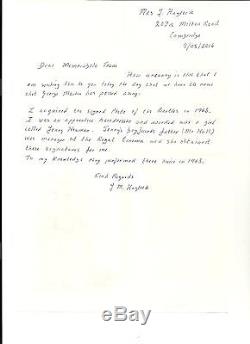 Mrs J. Haylock
202a Milton Road
Cambridge
9/03/2016
Dear Memorabilia Team
How uncanny is this that I
am writing to you today the day that we hear the news
that George Martin has passed away.
I acquired the signed Plate of the Beatles in 1963.
I was an apprentice hairdresser and worked with a girl
called Jenny
Jenny's boyfriends father (Mr Hall)
was manager at the Regal Cinema and she obtained
these signatures for me.
To my knowledge they performed there twice in 1963.
Kind Regards
J M. Haylock